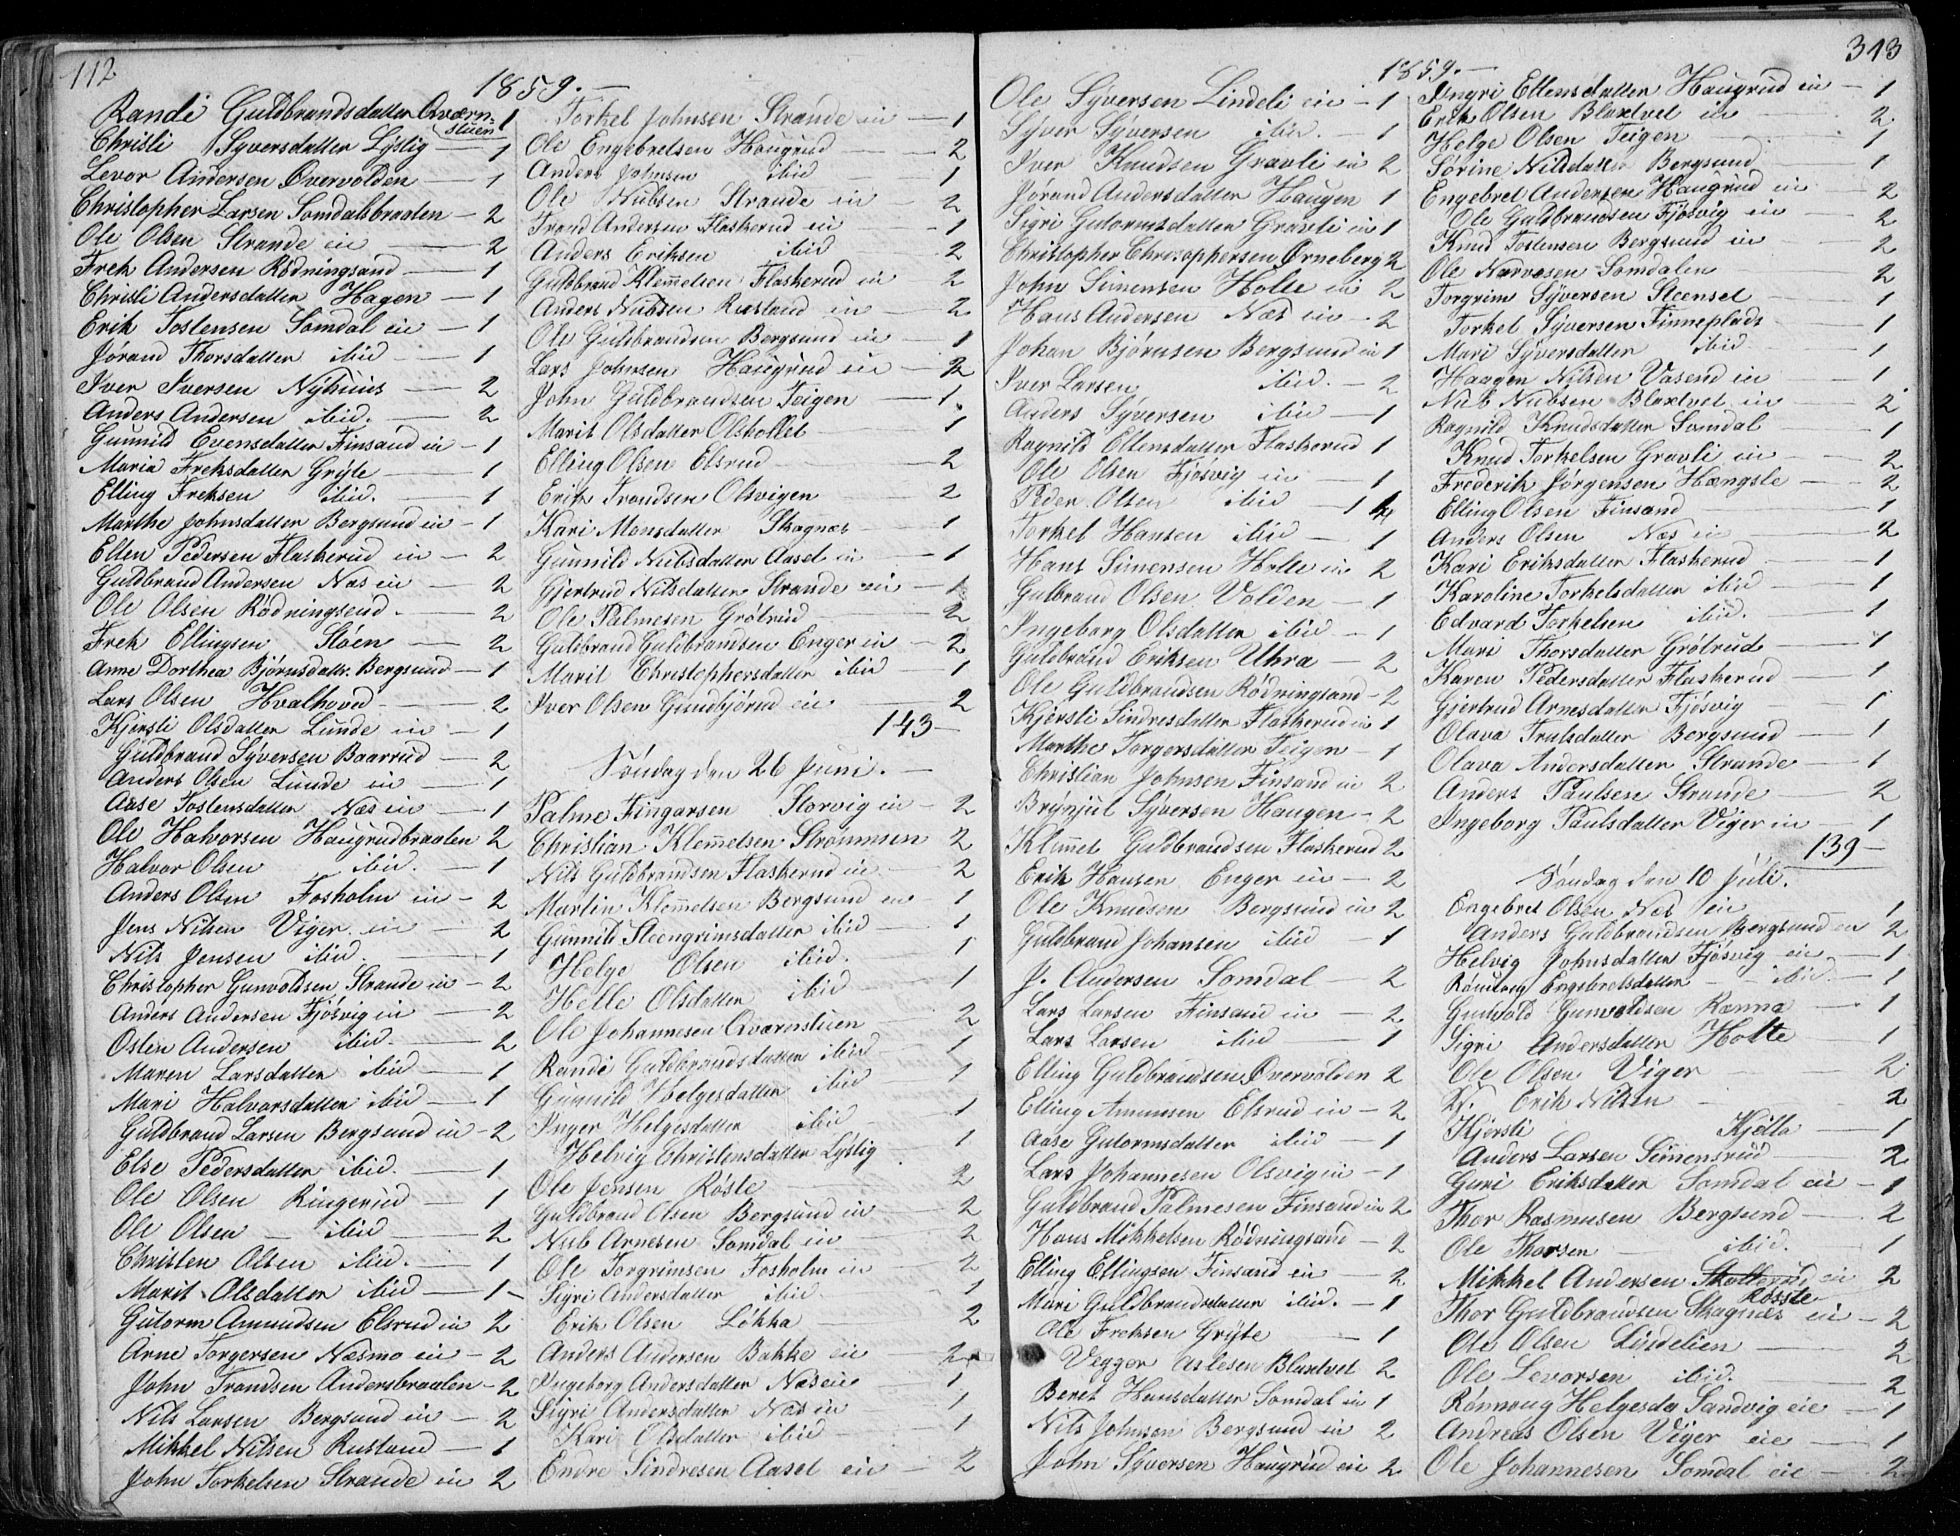 112
1859.—
Randi Guldbrandsdatter Qværn- 1
stuen
Christi Syversdatter Lystig — 1
Levor Andersen Øvervolden — 1
Christopher Larsen Somdalsbraaten — 2
Ole Olsen Strande eie — 2
Frek Andersen Rødningsand — 1
Christi Andersdatter Hagen — 1
Erik Tostensen Somdal eie — 1
Jørand Thorsdatter ibid — 1
Iver Iversen Nyhuus — 2
Anders Andersen ibid. — 2
Gunnild Evensdatter Finsand eie — 1
Maria Freksdatter Gryte — 1
Elling Freksen ibid. — 1
Marthe Johnsdatter Bergsund eie — 1
Ellen Pedersen Flaskerud eie — 2
Guldbrand Andersen Næs eie — 2
Ole Olsen Rødningsend. — 2
Frek Ellingsen Støen — 2
Anne Dorthea Bjørnsdatt. Bergsund — 1
Lars Olsen Hvalhoved — 2
Kjersti Olsdatter Lunde eie — 1
Guldbrand Syversen Baarrud — 2
Anders Olsen Lunde eie — 1
Aase Tostensdatter Næs eie — 1
Ole Halvorsen Haugrudbraaten 2
Halvor Olsen ibid. — 1
Anders Olsen Fosholm eie — 2
Jens Nilsen Viger eie — 2
Nils Jensen ibid. — 1
Christopher Gunvoldsen Strande eie — 2
Anders Andersen Fjøsvig eie — 2
Osten Andersen ibid. — 2
Maren Larsdatter ibid — 1
Mari Halvorsdatter ibid — 1
Guldbrand Larsen Bergsund eie — 2
Else Pedersdatter ibid. — 1
Ole Olsen Ringerud — 1
Ole Olsen — ibid — 2
Christen Olsen ibid. — 1
Marit Olsdatter ibid — 1
Gutorm Amundsen Elsrud eie 2
Arne Torgersen Næsmo eie — 2
John Trondsen Andersbraaten — 2
Nils Larsen Bergsund eie — 2
Mikkel Nilsen Rustand — 1
John Torkelsen Strande eie 2
Torkel Johnsen Strande eie — 1
Ole Engebretsen Haugrud — 2
Anders Johnsen ibid — 1
Ole Nubsen Strande eie 2
Trond Andersen Flaskerud eie — 1
Anders Eriksen ibid 2
Guldbrand Klemmetsen Flaskerud eie 2
Anders Nubsen Rustand eie — 2
Ole Guldbrandsen Bergsund eie — 1
Lars Johnsen Haugrud eie — 2
John Guldbrandsen Teigen — 1
Marit Olsdatter Olskollet 1
Elling Olsen Elsrud — 2
Erik Trondsen Olsvigen 2
Kari Monsdatter Skagnæs 1
Gunnild Nubsdatter Aaset eie — 1
Gjertrud Nilsdatter Strande eie —
Ole Palmesen Grøtrud — 2
Guldbrand Guldbrandsen Enger eie — 2
Marit Christophersdatter ibid — 1
Iver Olsen Gundbjørud eie — 2
143—
Søndag den 26 Juni. —
Palme Fingarsen Storvig eie 2
Christian Klemmetsen Strømmen 2
Nils Guldbrandsen Flaskerud eie — 2
Martin Klemmetsen Bergsund eie 1
Gunnild Steengrimsdatter ibid — 1
Helge Olsen ibid. 1
Helle Olsdatter ibid 1
Ole Johannesen Qværnstuen — 2
Randi Guldbrandsdatter ibid — 1
Gunnild Helgesdatter ibid — 1
Inger Helgesdatter ibid — 1
Helvig Christensdatter Lystig — 1
Ole Jensen Røste — 2
Guldbrand Olsen Bergsund eie — 2
Nub Arnesen Somdal eie 2
Ole Torgrimsen Fosholm eie — 2
Sigri Andersdatter ibid. — 1
Erik Olsen Løkka — 2
Anders Andersen Bakke eie — 2
Ingeborg Andersdatter Næs eie 1
Sigri Andersdatter Næs eie — 1
Kari Olsdatter ibid — 1
Endre Sindresen Aaset eie — 2
313
1859.—
Ole Syversen Lindeli eie — 1
Syver Syversen ibid. — 1
Iver Knudsen Gravli eie 2
Jørand Andersdatter Haugen 1
Sigri Gutormsdatter Gravli eie 1
Christopher Christophersen Ørneberg 2
John Simensen Holte eie 2
Hans Andersen Næs eie — 2
Johan Bjørnsen Bergsund eie 1
Iver Larsen ibid. — 2
Anders Syversen ibid — 1
Ragnild Ellensdatter Flaskerud 1
Ole Olsen Fjøsvig eie — 1
Peder Olsen ibid — 1
Torkel Hansen ibid — 1
Hans Simensen Holte eie 2
Gulbrand Olsen Volden — 1
Ingeborg Olsdatter ibid — 1
Guldbrand Eriksen Uhra — 2
Ole Guldbrandsen Rødningsand — 2
Kjersti Sindresdatter Flaskerud eie 1
Marthe Torgersdatter Teigen — 1
Christian Johnsen Finsand eie 2
Brynjul Syversen Haugen — 2
Klemmet Guldbrandsen Flaskerud 2
Erik Hansen Enger eie — 2
Ole Knudsen Bergsund eie 2
Guldbrand Johansen ibid — 1
J. Andersen Somdal — 2
Lars Larsen Finsand eie — 2
Lars Larsen ibid — 1
Elling Guldbrandsen Øvervolden 2
Elling Amunsen Elsrud eie — 2
Aase Gutormsdatter ibid — 1
Lars Johannesen Olsvig eie — 1
Guldbrand Palmesen Finsand eie 2
Hans Mikkelsen Rødningsand — 2
Elling Ellingsen Finsand eie — 2
Mari Guldbrandsdatter ibid. — 1
Ole Freksen Gryte — 1
Vegger Aslesen Blaxtvet 2
Beret Hansdatter Somdal eie 1
Nils Johnsen Bergsund eie 2
John Syversen Haugrud eie 2
Yngri Ellensdatter Haugrud eie — 1
Erik Olsen Blaxtvet eie — 2
Helge Olsen Teigen 1
Sørine Nilsdatter Bergsund 1
Engebret Andersen Haugrud eie — 2
Ole Guldbrandsen Fjøsvig eie — 2
Knud Tostensen Bergsund eie — 2
Ole Narvesen Somdalen — 2
Torgrim Syversen Steenset — 1
Torkel Syversen Finneplads — 1
Mari Syversdatter ibid. — 1
Haagen Nilsen Vasend eie — 1
Nub Nubsen Blaxtvet eie — 2
Ragnild Knudsdatter Somdal — 1
Knud Torkelsen Gravli eie — 2
Frederik Jørgensen Hængsle — 2
Elling Olsen Finsand — 1
Anders Olsen Næs eie — 2
Kari Eriksdatter Flaskerud — 1
Karoline Torkelsdatter ibid 1
Edvard Torkelsen ibid. — 1
Mari Thorsdatter Grøtrud — 1
Karen Pedersdatter Flaskerud — 1
Gjertrud Arnesdatter Fjøsvig — 1
Olava Trulsdatter Bergsund — 1
Olava Andersdatter Strande — 1
Anders Paulsen Strande — 2
Ingeborg Paulsdatter Viger eie — 1
139—
Søndag den 10 Juli.
Engebret Olsen Næs eie — 1
Anders Guldbrandsen Bergsund eie 2
Helvig Johnsdatter Fjøsvig eie — 1
Rønnoug Engebretsdatter — ibid. — 1
Gunvold Gunvoldsen Ramna — 1
Sigri Andersdatter Holte 1
Ole Olsen Viger — 2
Erik Nilsen — 2
Kjersti Kjølla — 1
Anders Larsen Simensrud — 2
Guri Eriksdatter Somdal eie — 1
Thor Rasmusen Bergsund — 2
Ole Thorsen — ibid. — 1
Mikkel Andersen Skollerud eie 2
Røste
Thor Guldbrandsen Skagnæs eie — 2
Ole Olsen Lindelien — 2
Ole Levorsen ibid. 2
Rønnoug Helgesda Sandvig eie — 1
Andreas Olsen Viger eie — 1
Ole Johannesen Somdal eie — 2